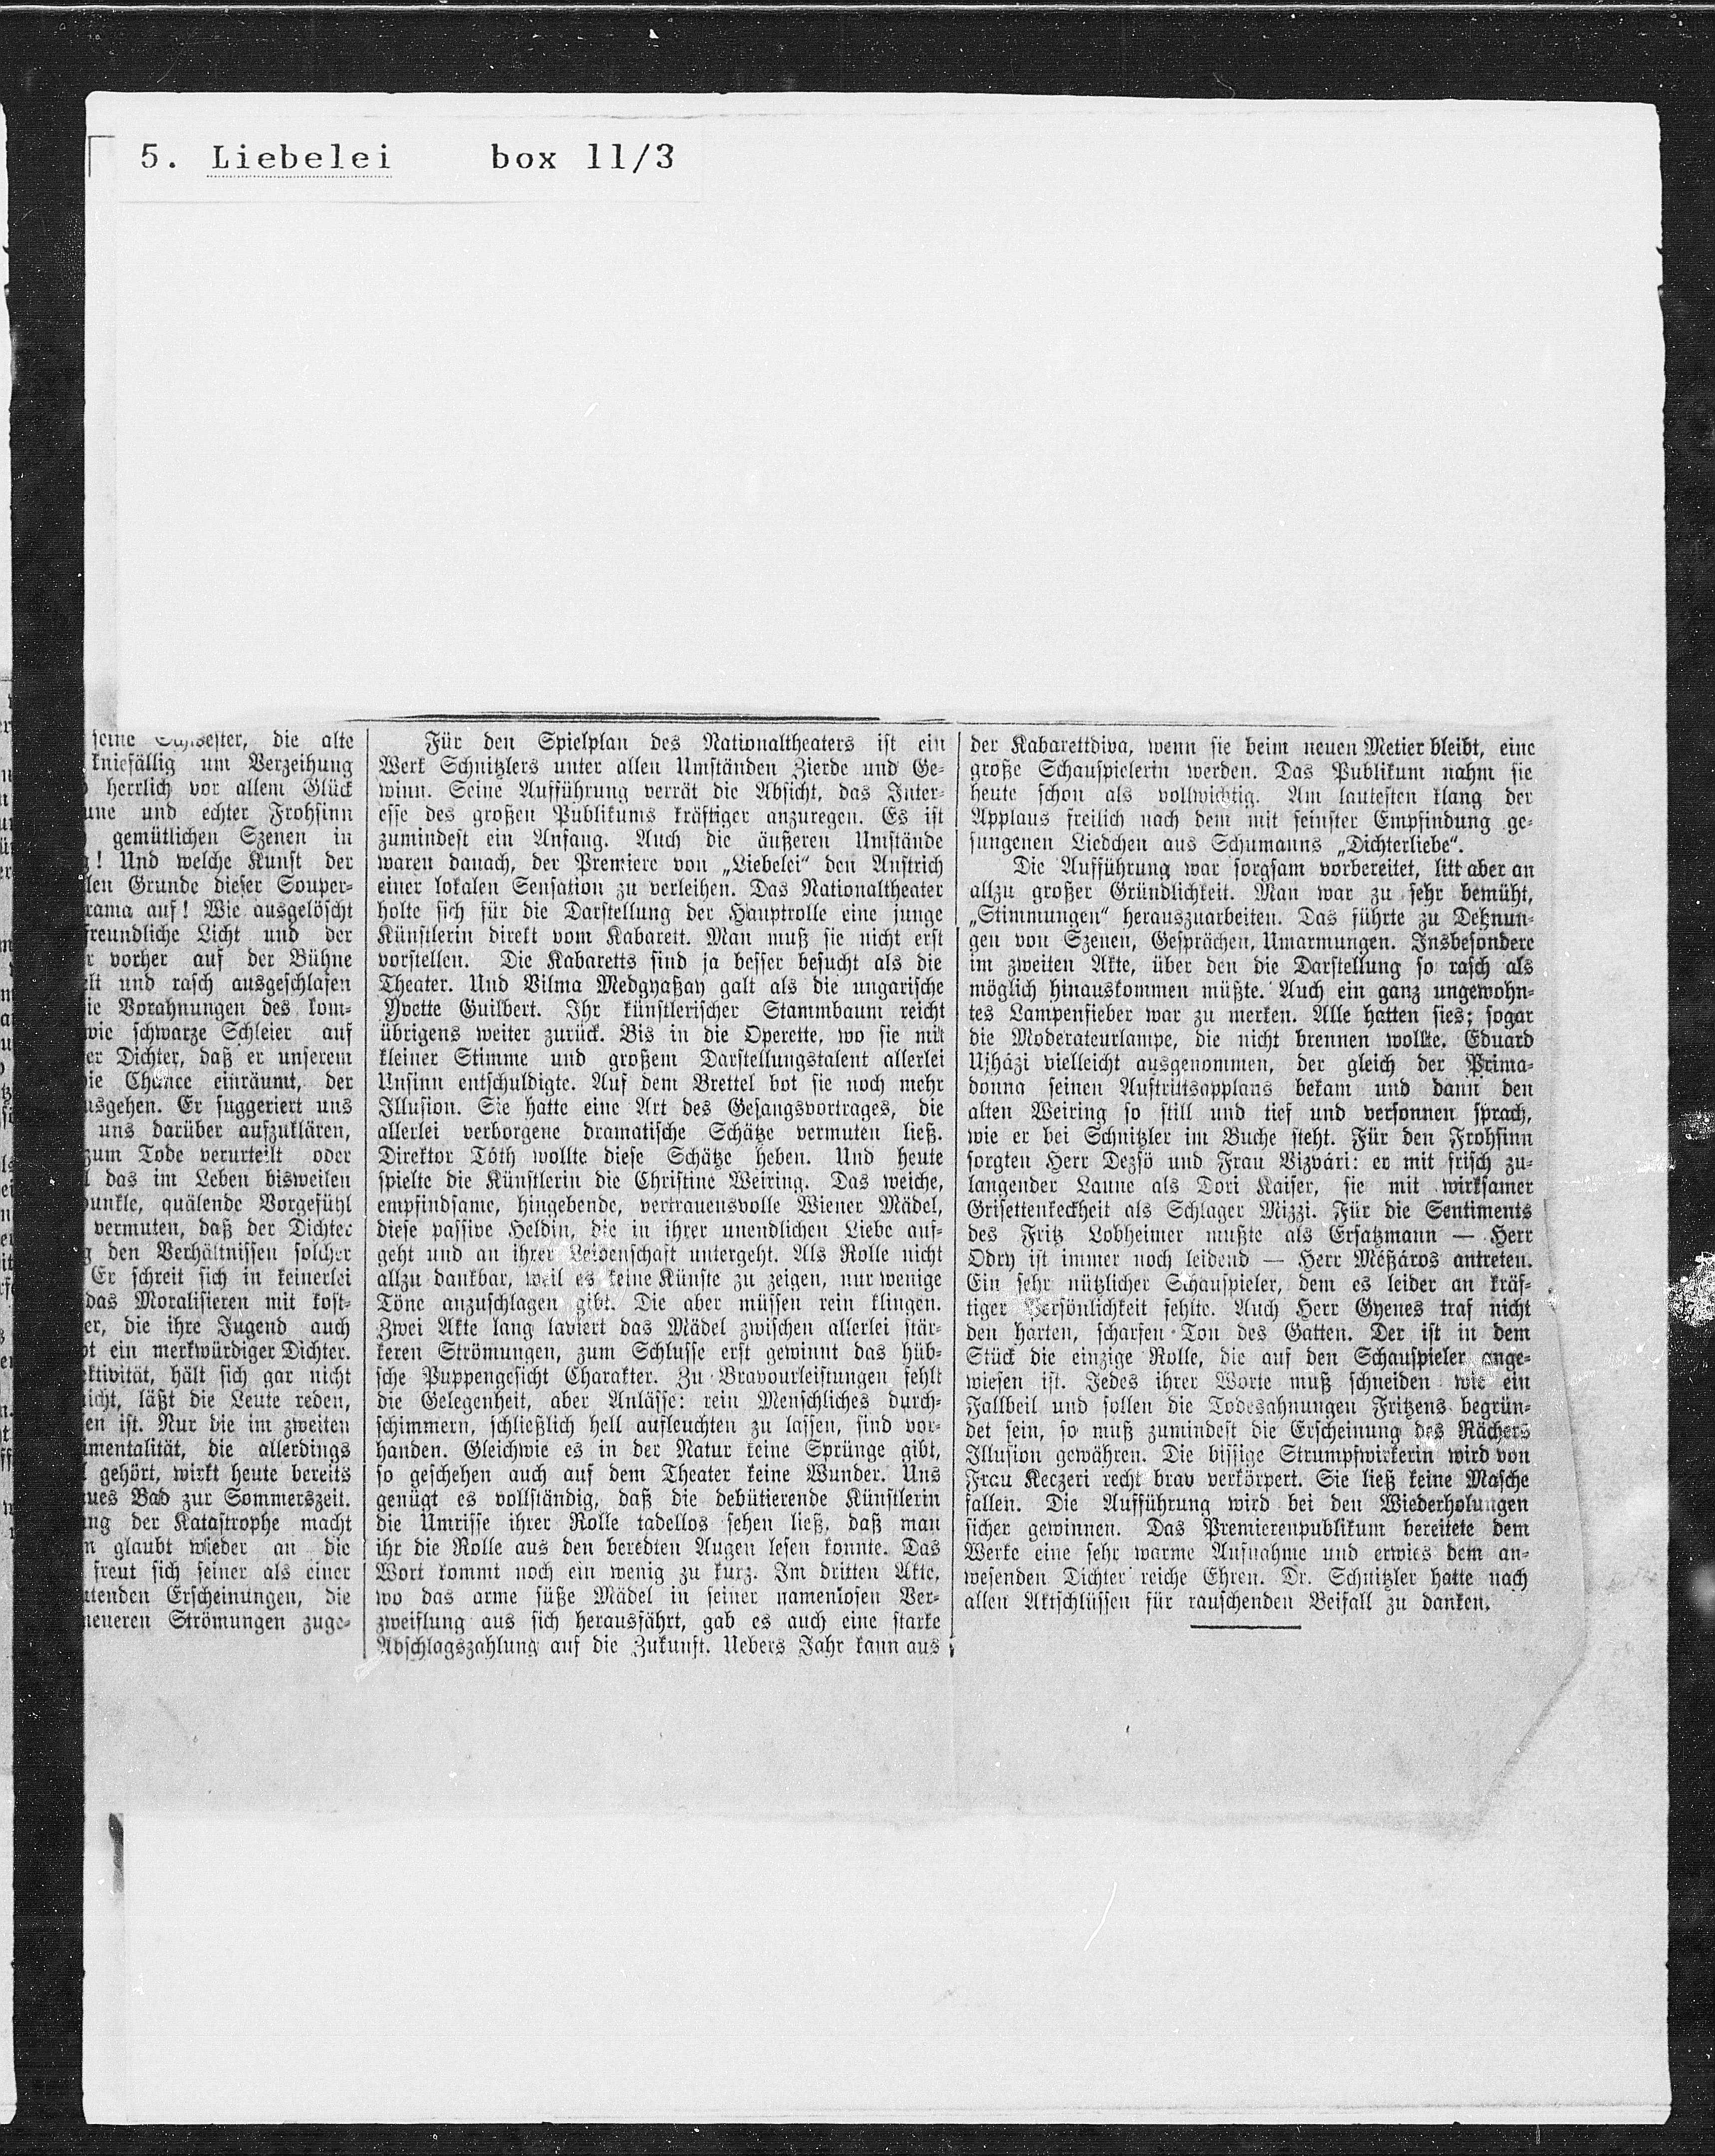 5. Liebelei box 11/3
seine die alte
kniefällig um Verzeihung
herrlich vor allem Glück
und echter Frohsinn
gemütlichen Szenen in
! Und welche Kunst der
Grunde dieser Souper-
auf! Wie ausgelöscht
freundliche Licht und der
vorher auf der Bühne
und rasch ausgeschlafen
Vorahnungen des kom-
wie schwarze Schleier auf
Dichter, daß er unserem
einräumt, der
Er suggeriert uns
uns darüber aufzuklären,
zum Tode verurteilt oder
das im Leben bisweilen
quälende Vorgefühl
vermuten, daß der Dichter
den Verhältnissen solcher
Er schreit sich in keinerlei
das Moralisieren mit kost-
die ihre Jugend auch
ein merkwürdiger Dichter.
hält sich gar nicht
läßt die Leute reden,
ist. Nur die im zweiten
die allerdings
gehört, wirkt heute bereits
Bad zur Sommerszeit.
der Katastrophe macht
glaubt wieder an die
freut sich seiner als einer
Erscheinungen, die
neueren Strömungen zuge-
Für den Spielplan des Nationaltheaters ist ein
Werk Schnitzlers unter allen Umständen Zierde und Ge-
winn. Seine Aufführung verrät die Absicht, das Inter-
esse des großen Publikums kräftiger anzuregen. Es ist
zumindest ein Anfang. Auch die äußeren Umstände
waren danach, der Premiere von „Liebelei“ den Anstrich
einer lokalen Sensation zu verleihen. Das Nationaltheater
holte sich für die Darstellung der Hauptrolle eine junge
Künstlerin direkt vom Kabarett. Man muß sie nicht erst
vorstellen. Die Kabaretts sind ja besser besucht als die
Theater. Und Vilma Medgyaßay galt als die ungarische
Yvette Guilbert. Ihr künstlerischer Stammbaum reicht
übrigens weiter zurück. Bis in die Operette, wo sie mit
kleiner Stimme und großem Darstellungstalent allerlei
Unsinn entschuldigte. Auf dem Brettel bot sie noch mehr
Illusion. Sie hatte eine Art des Gesangsvortrages, die
allerlei verborgene dramatische Schätze vermuten ließ.
Direktor Tóth wollte diese Schätze heben. Und heute
spielte die Künstlerin die Christine Weiring. Das weiche,
empfindsame, hingebende, vertrauensvolle Wiener Mädel,
diese passive Heldin, die in ihrer unendlichen Liebe auf-
geht und an ihrer Leidenschaft untergeht. Als Rolle nicht
allzu dankbar, weil es keine Künste zu zeigen, nur wenige
Töne anzuschlagen gibt. Die aber müssen rein klingen.
Zwei Akte lang laviert das Mädel zwischen allerlei stär-
keren Strömungen, zum Schlusse erst gewinnt das hüb-
sche Puppengesicht Charakter. Zu Bravourleistungen fehlt
die Gelegenheit, aber Anlässe: rein Menschliches durch-
schimmern, schließlich hell aufleuchten zu lassen, sind vor-
handen. Gleichwie es in der Natur keine Sprünge gibt,
so geschehen auch auf dem Theater keine Wunder. Uns
genügt es vollständig, daß die debütierende Künstlerin
die Umrisse ihrer Rolle tadellos sehen ließ, daß man
ihr die Rolle aus den beredten Augen lesen konnte. Das
Wort kommt noch ein wenig zu kurz. Im dritten Akte,
wo das arme süße Mädel in seiner namenlosen Ver-
zweiflung aus sich herausfährt, gab es auch eine starke
Abschlagszahlung auf die Zukunft. Uebers Jahr kann aus
der Kabarettdiva, wenn sie beim neuen Metier bleibt, eine
große Schauspielerin werden. Das Publikum nahm sie
heute schon als vollwichtig. Am lautesten klang der
Applaus freilich nach dem mit feinster Empfindung ge-
sungenen Liedchen aus Schumanns „Dichterliebe“.
Die Aufführung war sorgsam vorbereitet, litt aber an
allzu großer Gründlichkeit. Man war zu sehr bemüht,
„Stimmungen“ herauszuarbeiten. Das führte zu Dehnun-
gen von Szenen, Gesprächen, Umarmungen. Insbesondere
im zweiten Akte, über den die Darstellung so rasch als
möglich hinauskommen müßte. Auch ein ganz ungewohn-
tes Lampenfieber war zu merken. Alle hatten sies; sogar
die Moderateurlampe, die nicht brennen wollte. Eduard
Ujházi vielleicht ausgenommen, der gleich der Prima-
donna seinen Auftrittsapplaus bekam und dann den
alten Weiring so still und tief und versonnen sprach,
wie er bei Schnitzler im Buche steht. Für den Frohsinn
sorgten Herr Dezsö und Frau Vizvári: er mit frisch zu-
langender Laune als Dori Kaiser, sie mit wirksamer
Grisettenkeckheit als Schlager Mizzi. Für die Sentiments
des Fritz Lobheimer mußte als Ersatzmann — Herr
Odry ist immer noch leidend — Herr Mészáros antreten.
Ein sehr nützlicher Schauspieler, dem es leider an kräf-
tiger Persönlichkeit fehlte. Auch Herr Gyenes traf nicht
den harten, scharfen Ton des Gatten. Der ist in dem
Stück die einzige Rolle, die auf den Schauspieler ange-
wiesen ist. Jedes ihrer Worte muß schneiden wie ein
Fallbeil und sollen die Todesahnungen Fritzens begrün-
det sein, so muß zumindest die Erscheinung des Rächers
Illusion gewähren. Die bissige Strumpfwirkerin wird von
Frau Keczeri recht brav verkörpert. Sie ließ keine Masche
fallen. Die Aufführung wird bei den Wiederholungen
sicher gewinnen. Das Premierenpublikum bereitete dem
Werke eine sehr warme Aufnahme und erwies dem an-
wesenden Dichter reiche Ehren. Dr. Schnitzler hatte nach
allen Aktschlüssen für rauschenden Beifall zu danken.